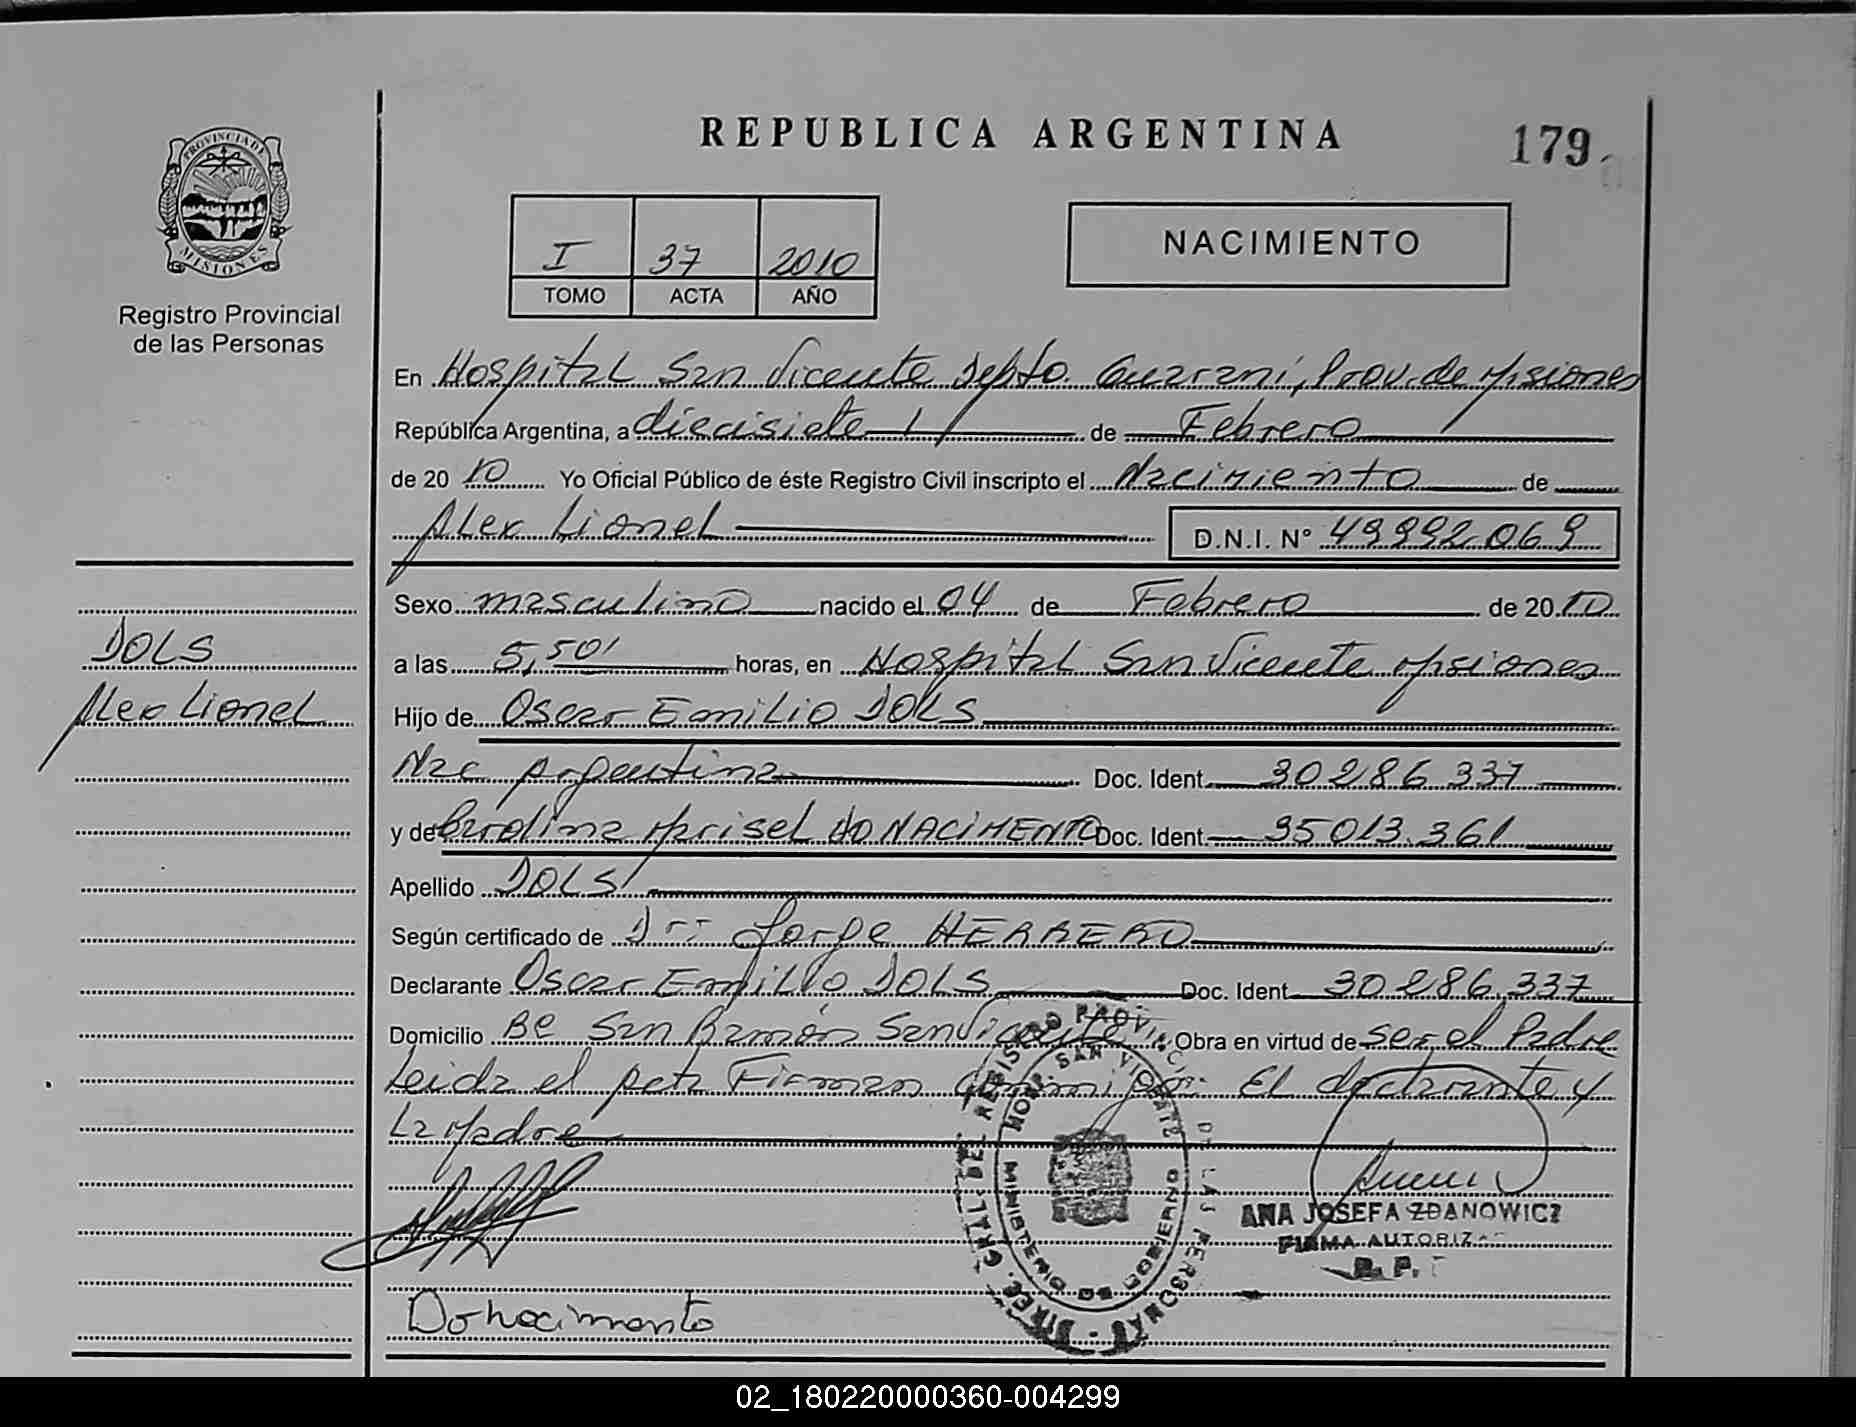 REPUBLICA ARGENTINA
179
PROVINCIA DE MISIONES
Registro Provincial
de las Personas
I 37 2010
TOMO ACTA AÑO
NACIMIENTO
En Hospital San Vicente Depto. Guaraní, Prov. de Misiones
República Argentina, a diecisiete de Febrero
de 20 10 Yo Oficial Público de éste Registro Civil inscripto el Nacimiento de
Alex Lionel D.N.I. N° 49992069
Sexo masculino nacido el 04 de Febrero de 20 10
a las 5,50' horas, en Hospital San Vicente Misiones
DOLS
Alex Lionel
Hijo de Oscar Emilio DOLS
Nac Argentina Doc. Ident. 30286.337
y de Carolina Marisel DO NACIMENTO Doc. Ident. 35013.361
Apellido DOLS
Según certificado de Dr: Jorge HERRERO
Declarante Oscar Emilio DOLS Doc. Ident. 30286.337
Domicilio Bº San Ramón San Vicente Obra en virtud de ser el Padre
Leida el Acta Firman conmigo: El declarante y
La Madre
DIREC. GRAL. DEL REGISTRO PROVINC. DE LAS PERSONAS
HOSP. SAN VICENTE
MINISTERIO DE GOBIERNO
ANA JOSEFA ZDANOWICZ
FIRMA AUTORIZ
R. P.
Donacimento
02_180220000360-004299